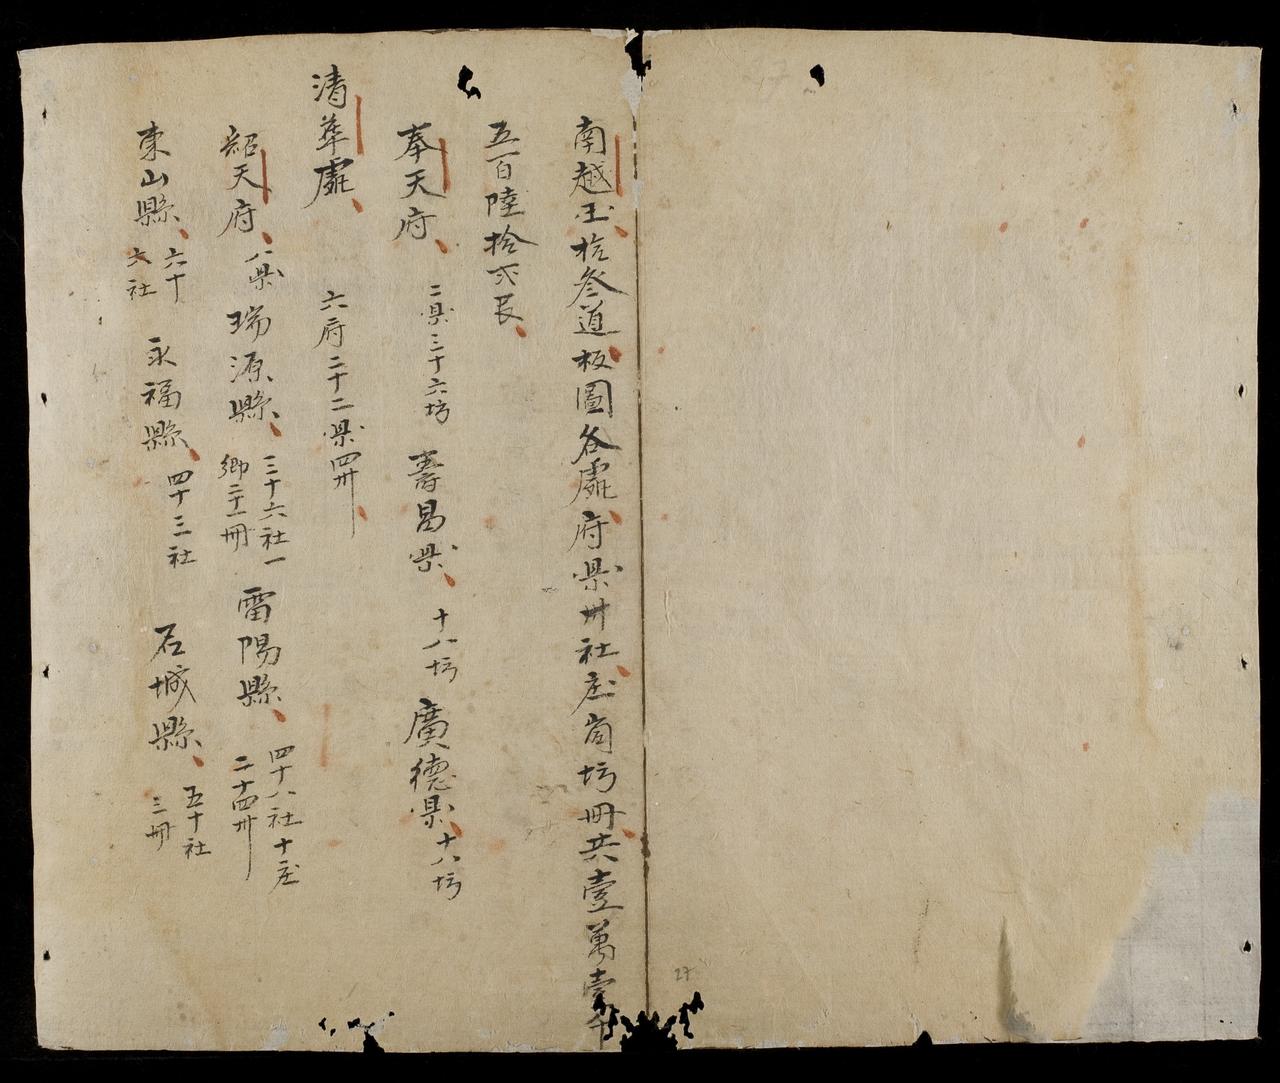 南越玉拾叁道板圖各處府県卅社庄崗坊冊共壹萬壹千
五百陸拾弍民
奉天府 二県三十六坊 壽昌県 十八坊 廣德県 十八坊
清華處 六府二十二県四卅
紹天府 八県 瑞源縣 三十六社一鄉二十一冊 雷陽縣 四十八社十庄二十四卅
東山縣 六十六社 永福縣 四十三社 石城縣 五十社三冊
27